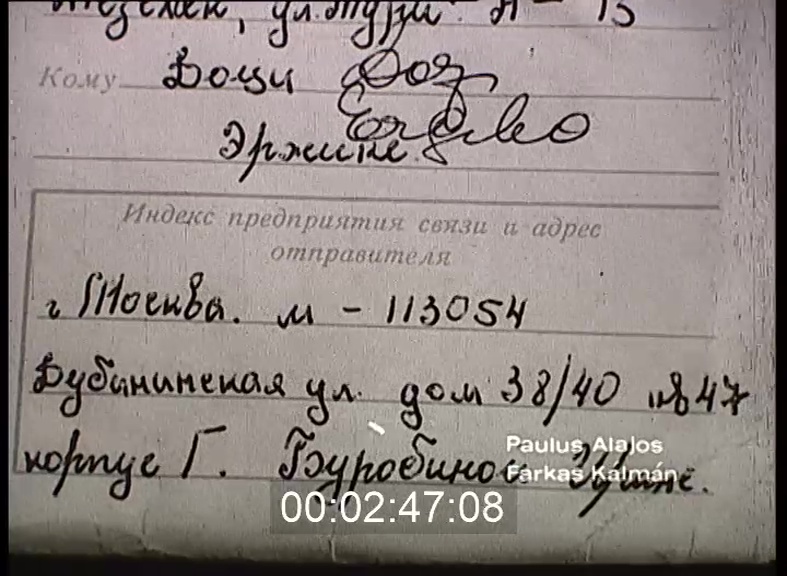 ул. Жури А - 13
Кому Доци Doz
Эржине Erzsko
Индекс предприятия связи и адрес
отправителя
г Москва. м - 113054
Дубининская ул. дом 38/40 кв 47
корпус Г. Бауробиной
Paulus Alajos
Farkas Kálmán
00:02:47:08